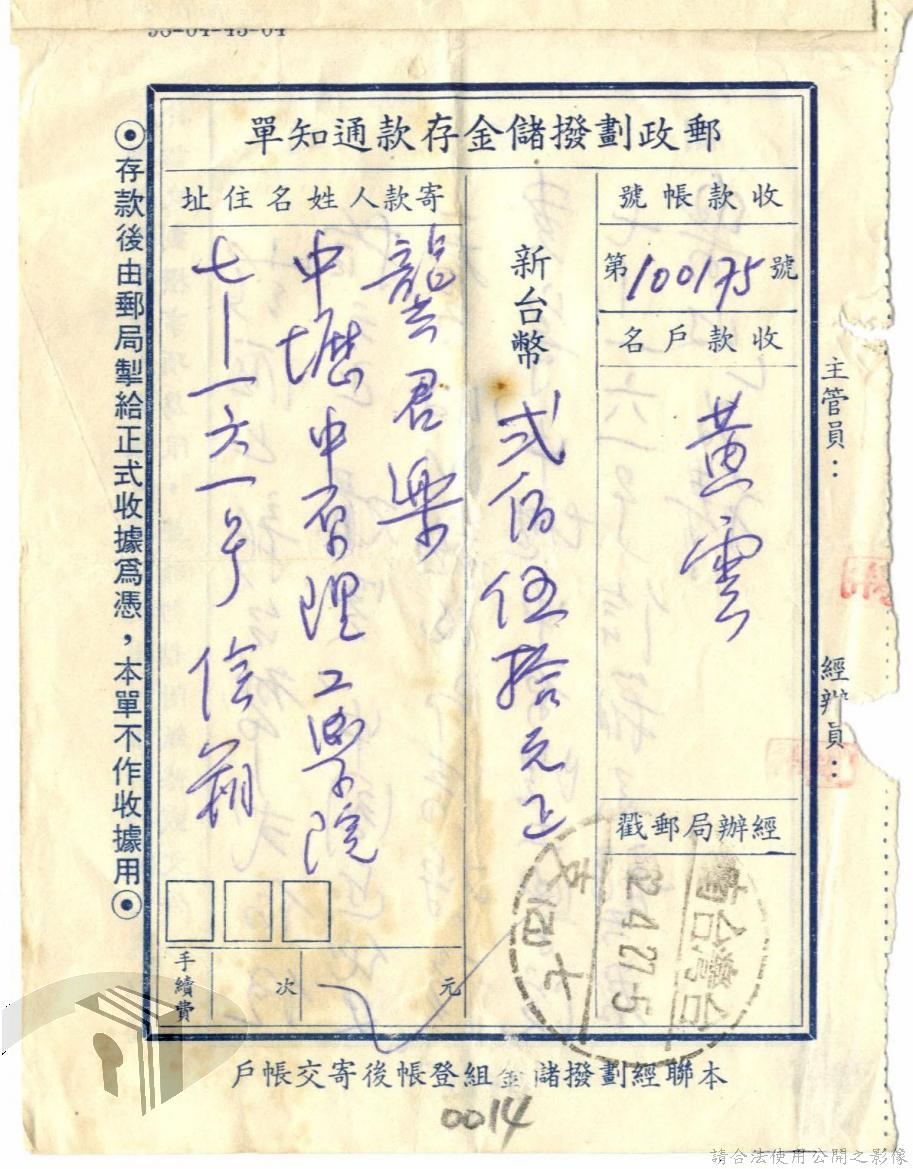 98-04-43-04
郵政劃撥儲金存款通知單
收款帳號
第100175號
收款戶名
黃雲
經辦局郵戳
台灣台南
62.4.27-5
新台幣 貳佰伍拾元正
寄款人姓名住址
龔君樂
中壢中原理工學院
七一一六一号信箱
手續費
次
元
主管員：
經辦員：
⊙存款後由郵局掣給正式收據為憑，本單不作收據用⊙
本聯經劃撥儲金組登帳後寄交帳戶
0014
請合法使用公開之影像